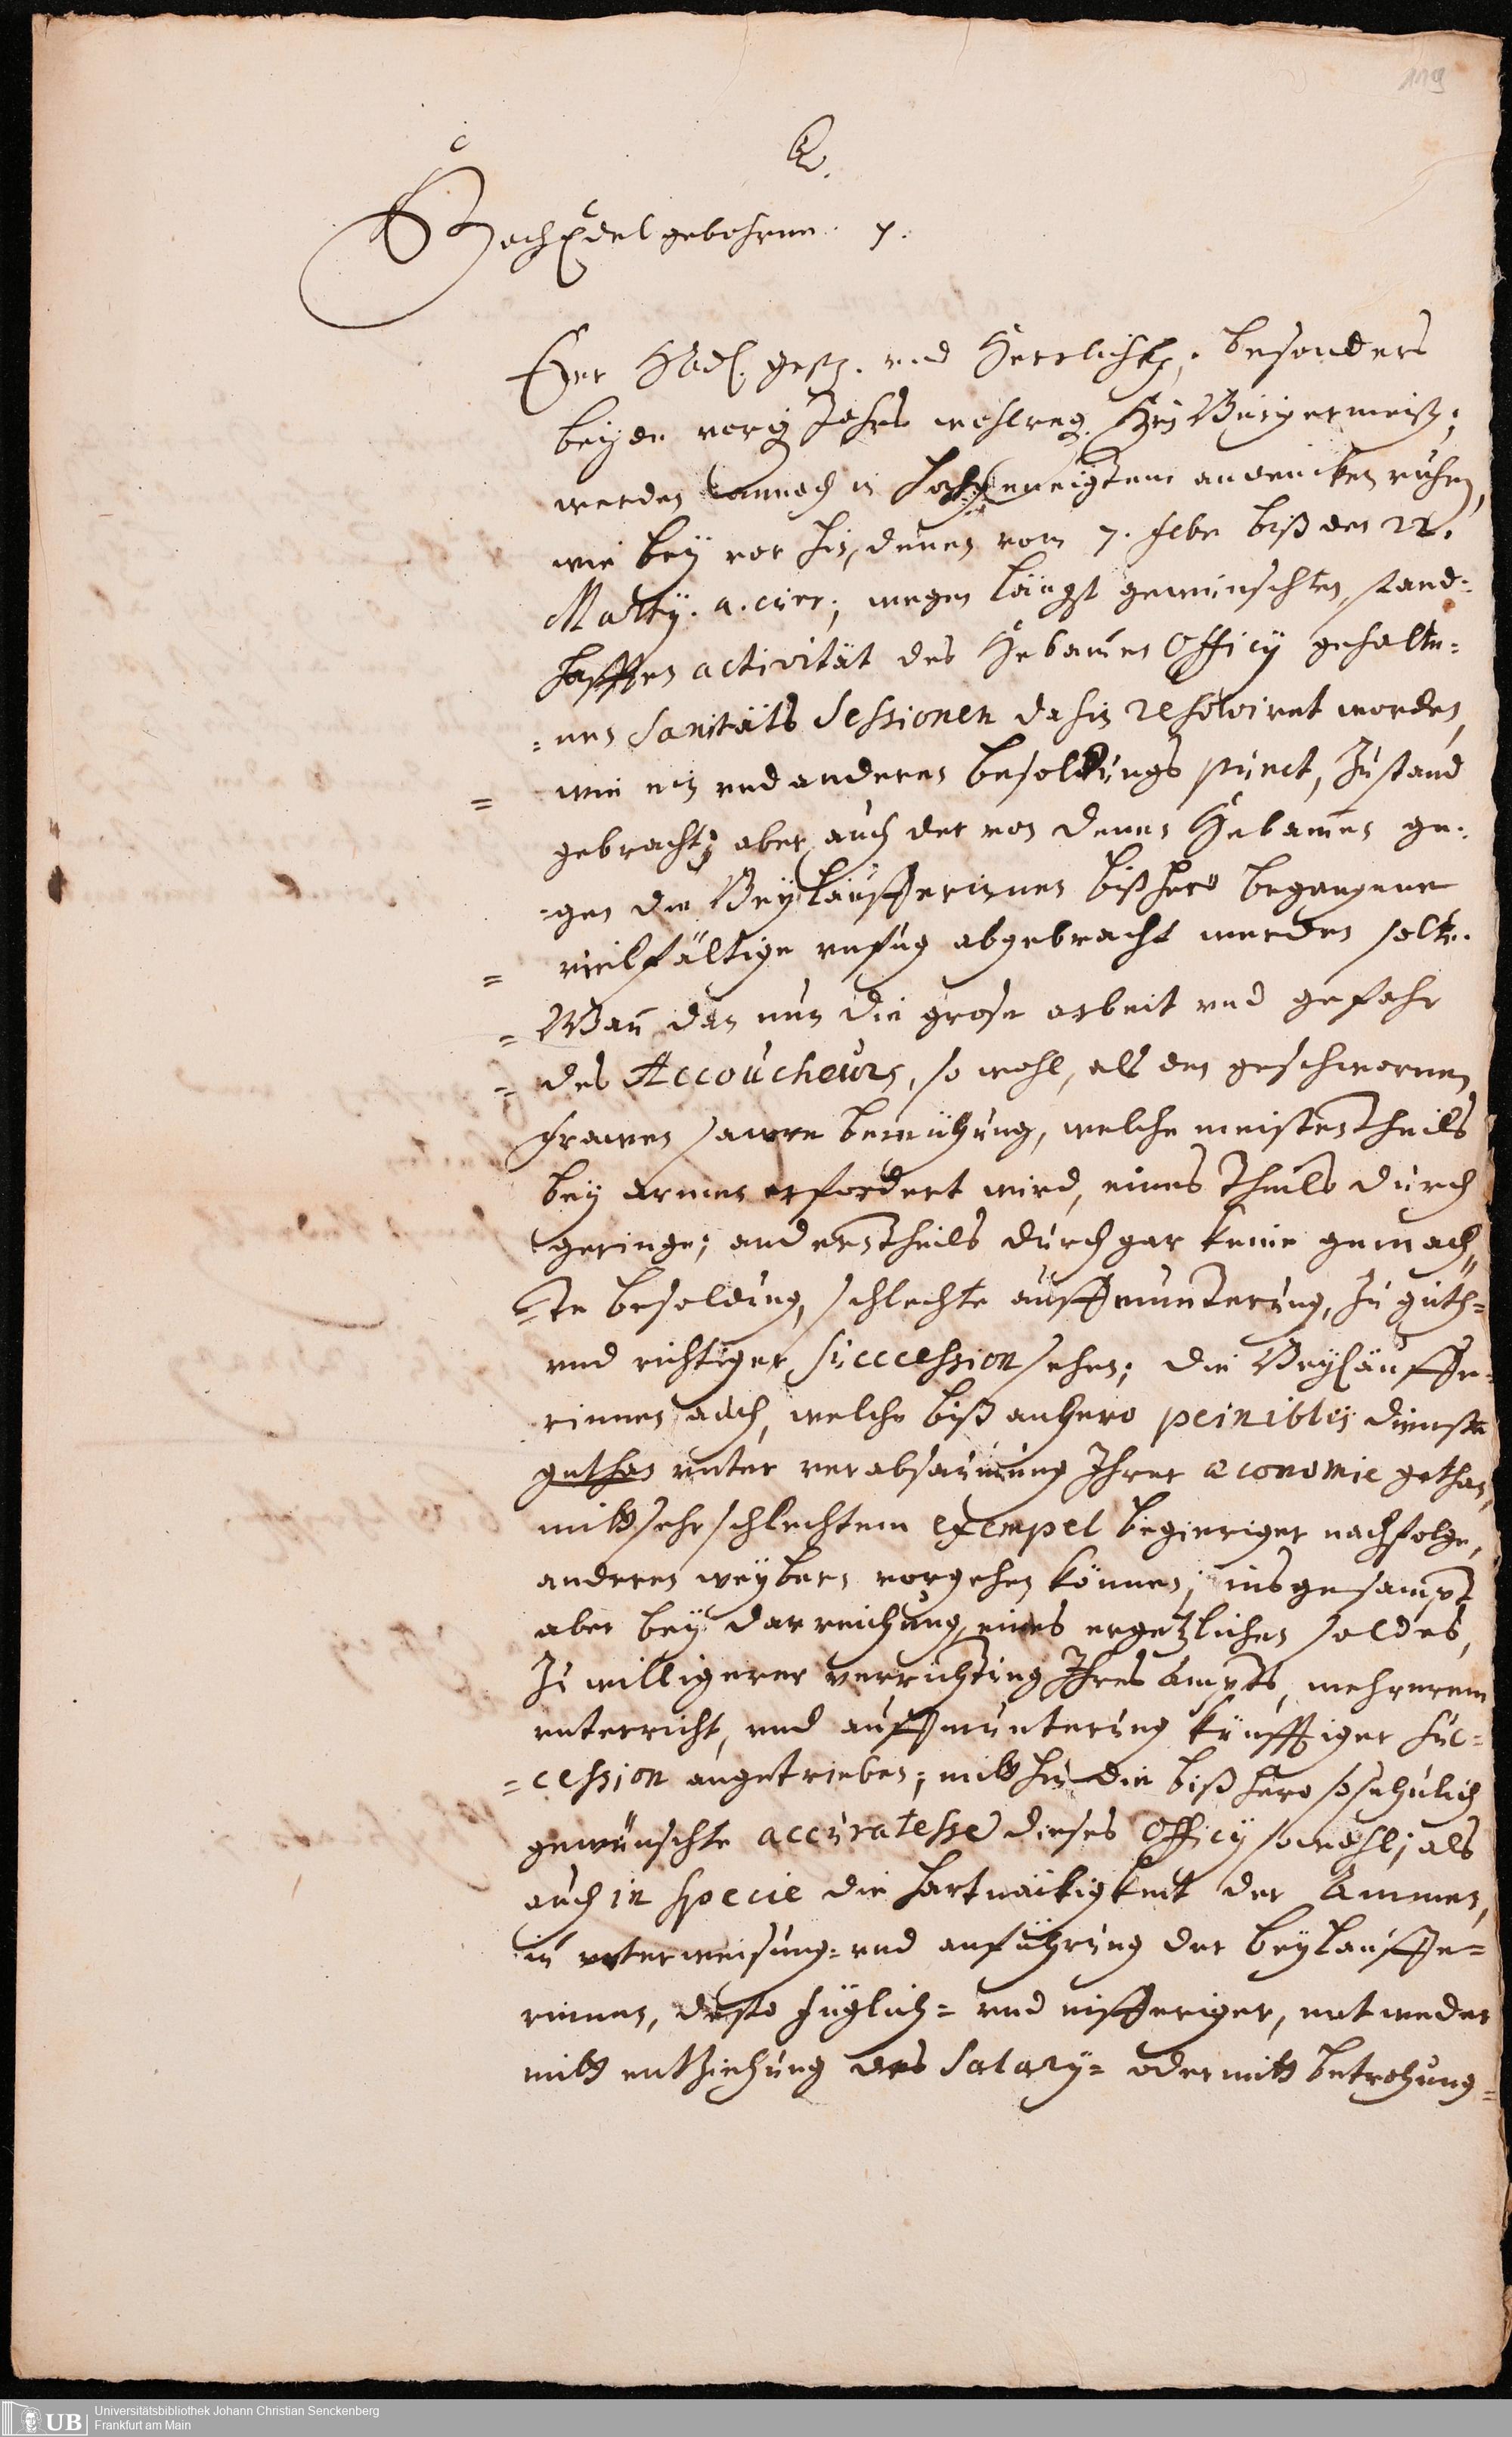 119
Q.
HochEdelgebohrne p.
Ewr HWEdl. gestr. und Herrlichk., besonders
beyde vorig Jahrs wohlreg. Hn Bürgermeist.,
werden annoch in hochgeneigtem andencken ruhen,
wie bey vor hin, denen vom 7. Febr biß den 22.
Marty. a. curr., wegen längst gewünschten, stand-
hafften activität des Hebamen Officy gehalte-
=nen Sanitäts Sessionen dahin resolviret worden,
= wie ein und anderer besoldungs punct, zustand
gebracht; aber auch der von denen Hebamen ge-
=gen die Beyläufferinnen bißhero begangene
= vielfältige unfug abgebracht werden solte.
= Wan dan nun die grose arbeit und gefahr
= des Accoucheurs, so wohl, als der geschwornen
frawen sawre bemühung, welche meistentheils
bey armen erfordert wird, eines theils durch
geringe; anderntheils durch gar keine gemach-
=te besoldung, schlechte auffmunterung, zu guth=
und richtiger succession sehen; die Beyläuffe-
rinnen auch, welche biß anhero peinibles dienste
gethan unter verabsaumung Ihrer œconomie gethan,
mitt sehr schlechtem exempel begieriger nachfolge,
anderen weybern vorgehen können; ins gesampt
aber bey darreichung eines ergetzlichen soldes,
zu willigerer verrichtung Ihres Ampts, mehrerem
unterricht, und auffmunterung künfftiger suc-
=cession angetrieben; mitt hin die biß hero so sehnlich
gewünschte accuratesse dieses Officy sowohl; als
auch in specie die hartnäckigkeit der Ammen,
in unterweisung= und anführung der beyläuffe=
rinnen, desto füglich= und eifferiger, entweder
mitt entziehung des Salary= oder mitt betrohung=
UB
Universitätsbibliothek Johann Christian Senckenberg
Frankfurt am Main